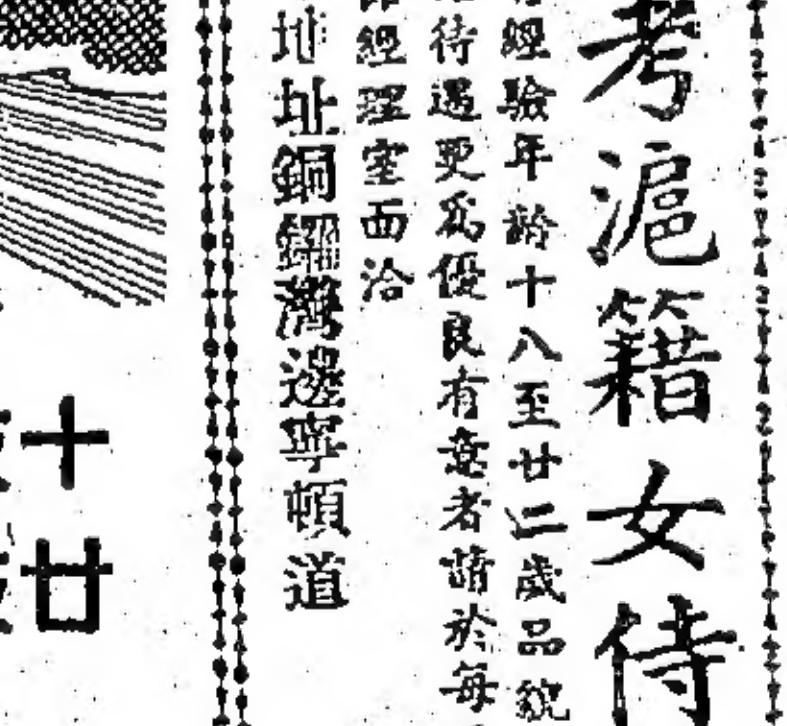 考滬籍女侍
經驗年齡十八至廿二歲品貌
待遇更為優良有意者請於每
經理室面洽
地址銅鑼灣邊寧頓道
十
廿